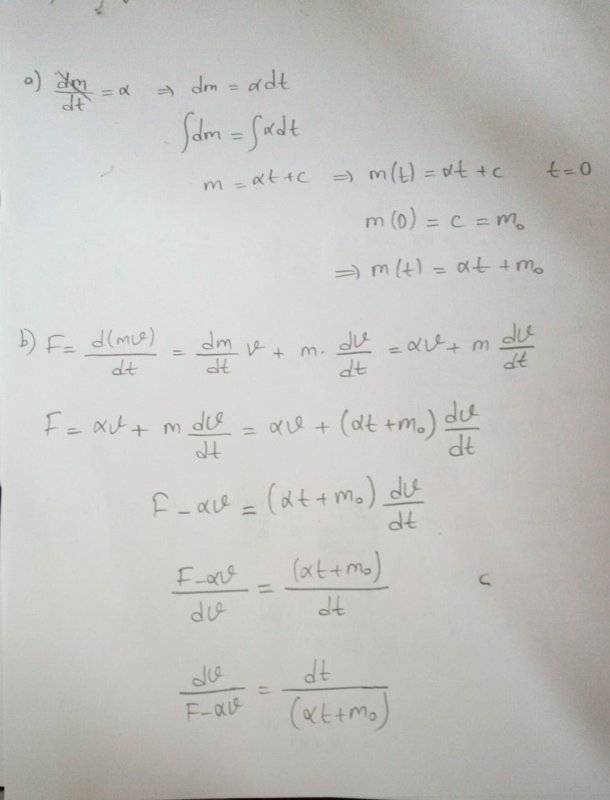 a) dm/dt = α ⇒ dm = αdt
∫dm = ∫αdt
m = αt+c ⇒ m(t) = αt + c t=0
m(0) = c = m₀
⇒ m(t) = αt + m₀
b) F = d(mv)/dt = dm/dt v + m · dv/dt = αv + m dv/dt
F = αv + m dv/dt = αv + (αt + m₀) dv/dt
F - αv = (αt + m₀) dv/dt
F-αv/dv = (αt + m₀)/dt
dv/F-αv = dt/(αt + m₀)